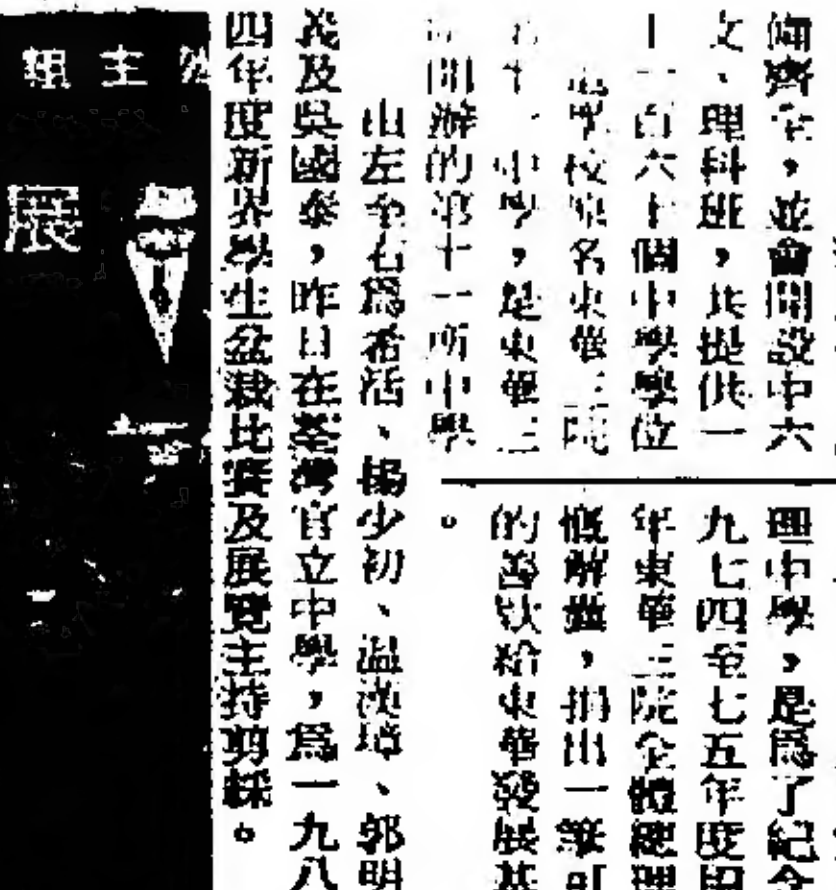 備齊全，並會開設中六
文、理科班，共提供一
千一百六十個中學學位
學校原名東華三院
十一中學，是東華三
開辦的第十一所中學
理中學，是爲了紀念
九七四至七五年度
年東華三院全體總理
慨解囊，捐出一筆可
的善款給東華發展基
。
由左至右爲希活、楊少初、温漢璋、郭明
義及吳國泰，昨日在荃灣官立中學，爲一九八
四年度新界學生盆栽比賽及展覽主持剪綵。
主
展